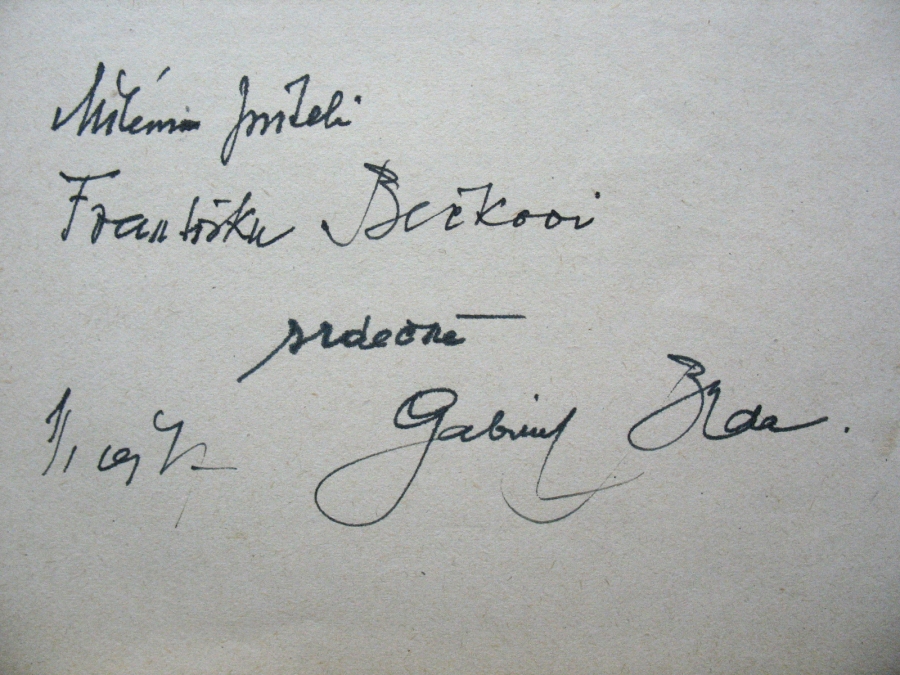 Milému příteli
Františku Bečkovi
srdečně
Gabriel Brda.